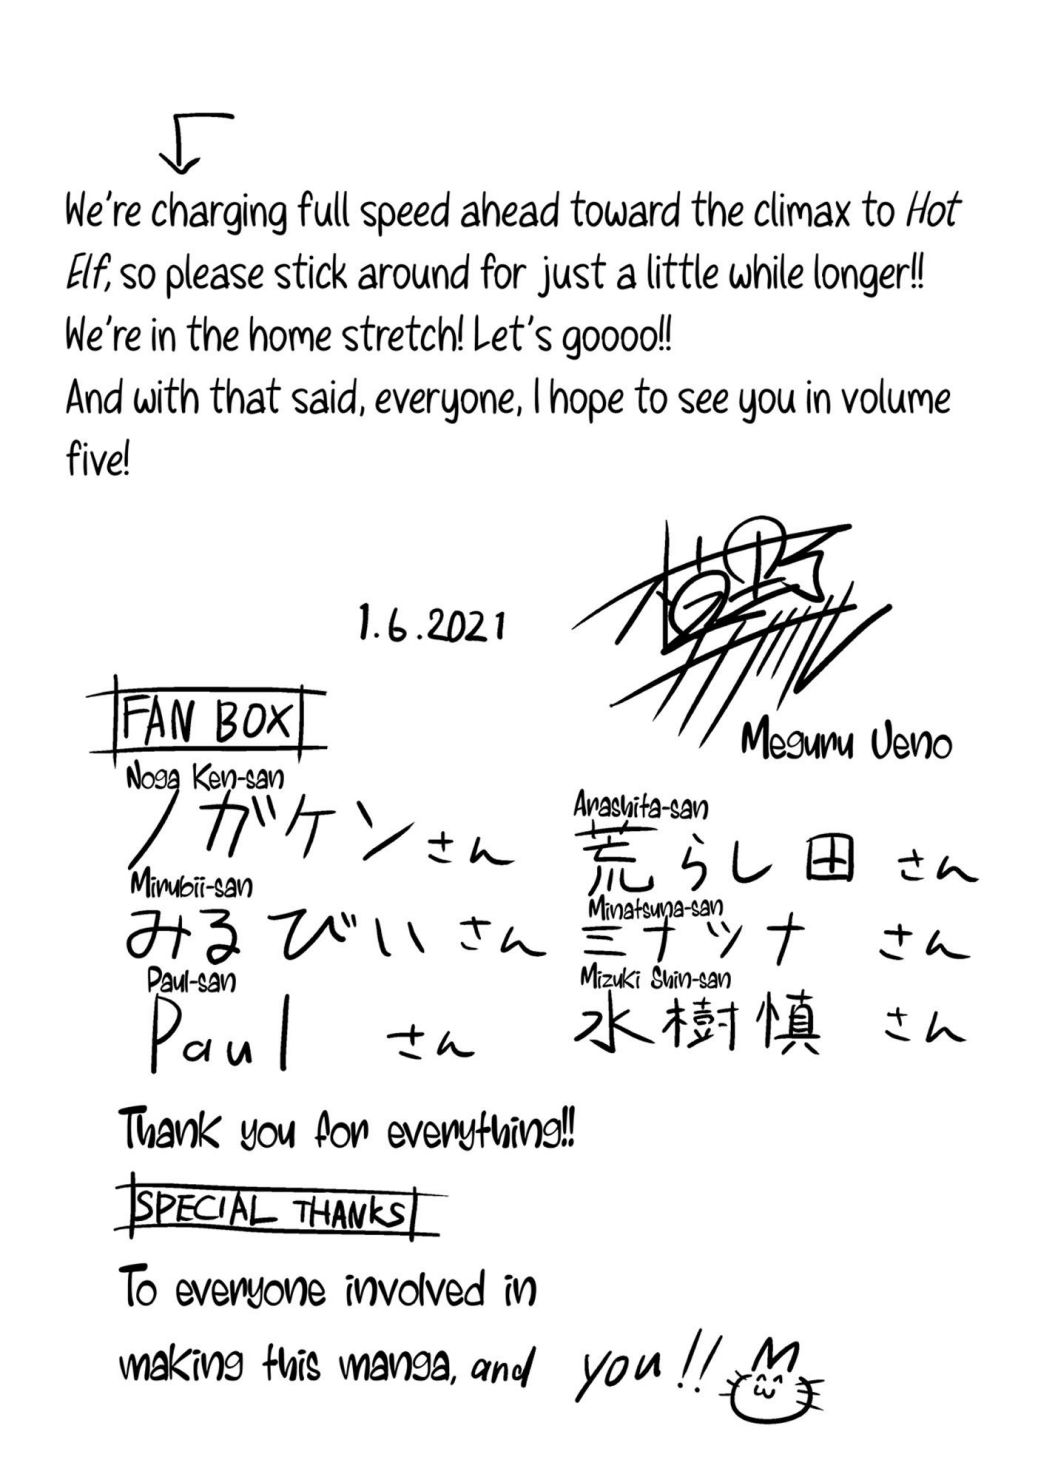 We're charging full speed ahead toward the climax to Hot
Elf, so please stick around for just a little while longer!!
We're in the home stretch! Let's goooo!!
And with that said, everyone, I hope to see you in volume
five!
1.6.2021
Meguru Ueno
FAN BOX
Noga Ken-san
ノガケンさん
Mirubii-san
みるびいさん
Paul-san
Paul さん
Arashita-san
荒らし田 さん
Minatsuna-san
ミナツナ さん
Mizuki Shin-san
水樹慎 さん
Thank you for everything!!
SPECIAL THANKS
To everyone involved in
making this manga, and you!!